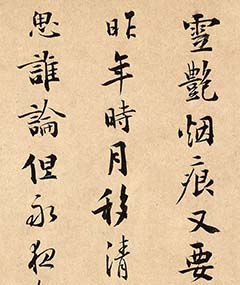 雪艷烟痕又要
昨年時月移清
思誰論但永夜